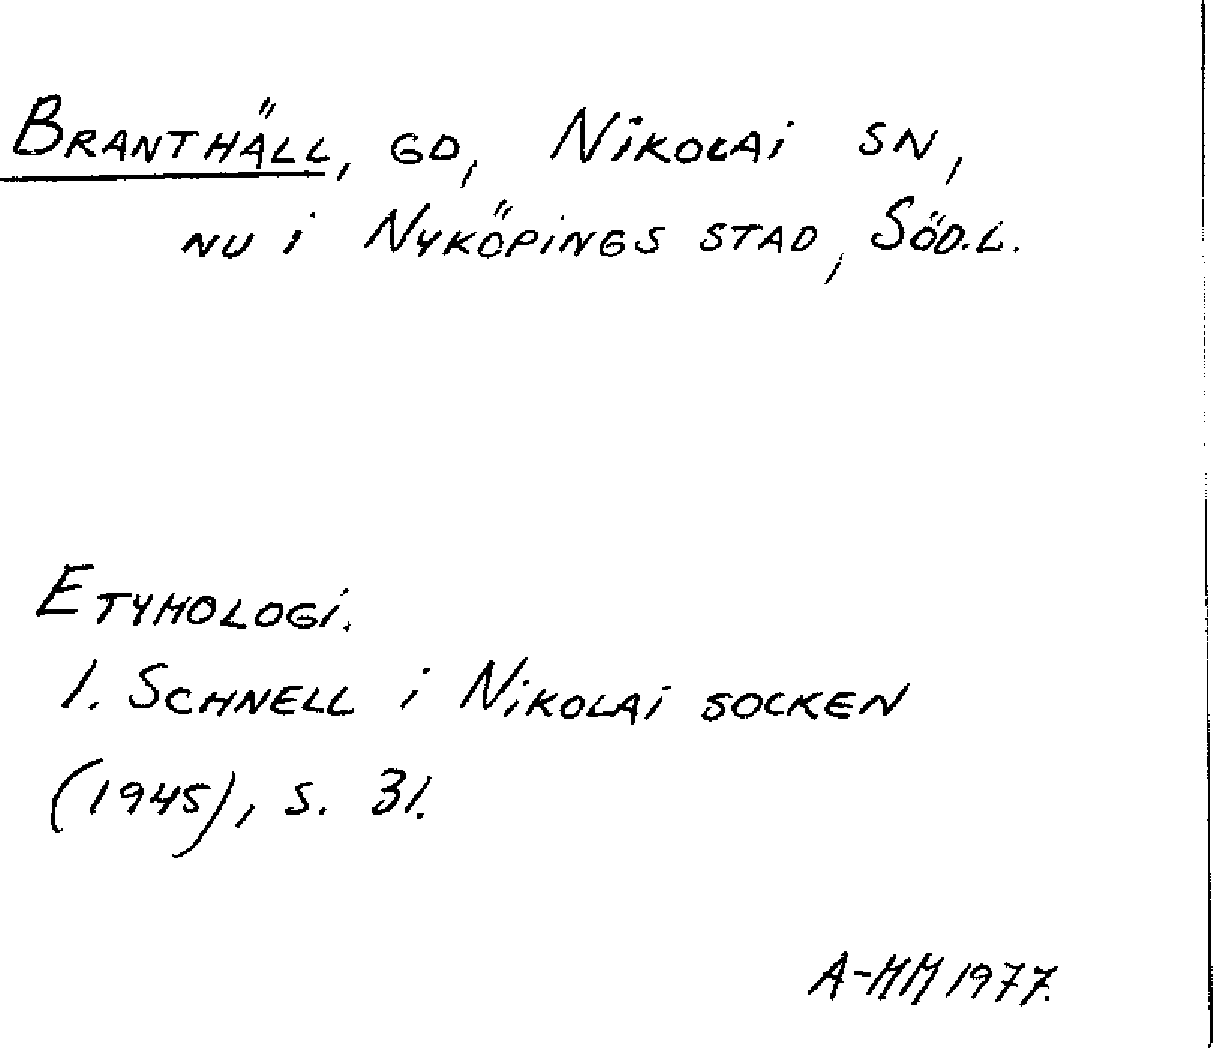 BRANTHÄLL, GD, NIKOLAI SN,
NU I NYKÖPINGS STAD, SÖD.L.
ETYMOLOGI.
I. SCHNELL I NIKOLAI SOCKEN
(1945), S. 31.
A-MM 1977.